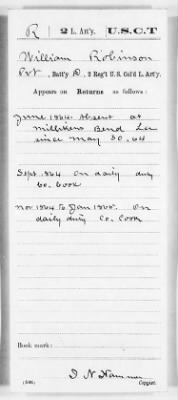 R | 2 L. Art'y. | U.S.C.T
William Robinson
Pvt, Batt'y D, 2 Reg't U. S. Col'd L. Art'y.
Appears on Returns as follows:
June 1864 Absent at
Millikens Bend La
since May 30. 64
Sept 1864 On daily duty
Co. Cook
Nov 1864 to Jan 1865. On
daily duty Co. Cook
Book mark:
Copyist.